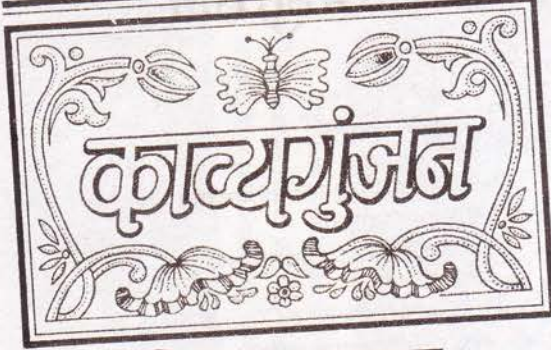 काव्यगुंजन